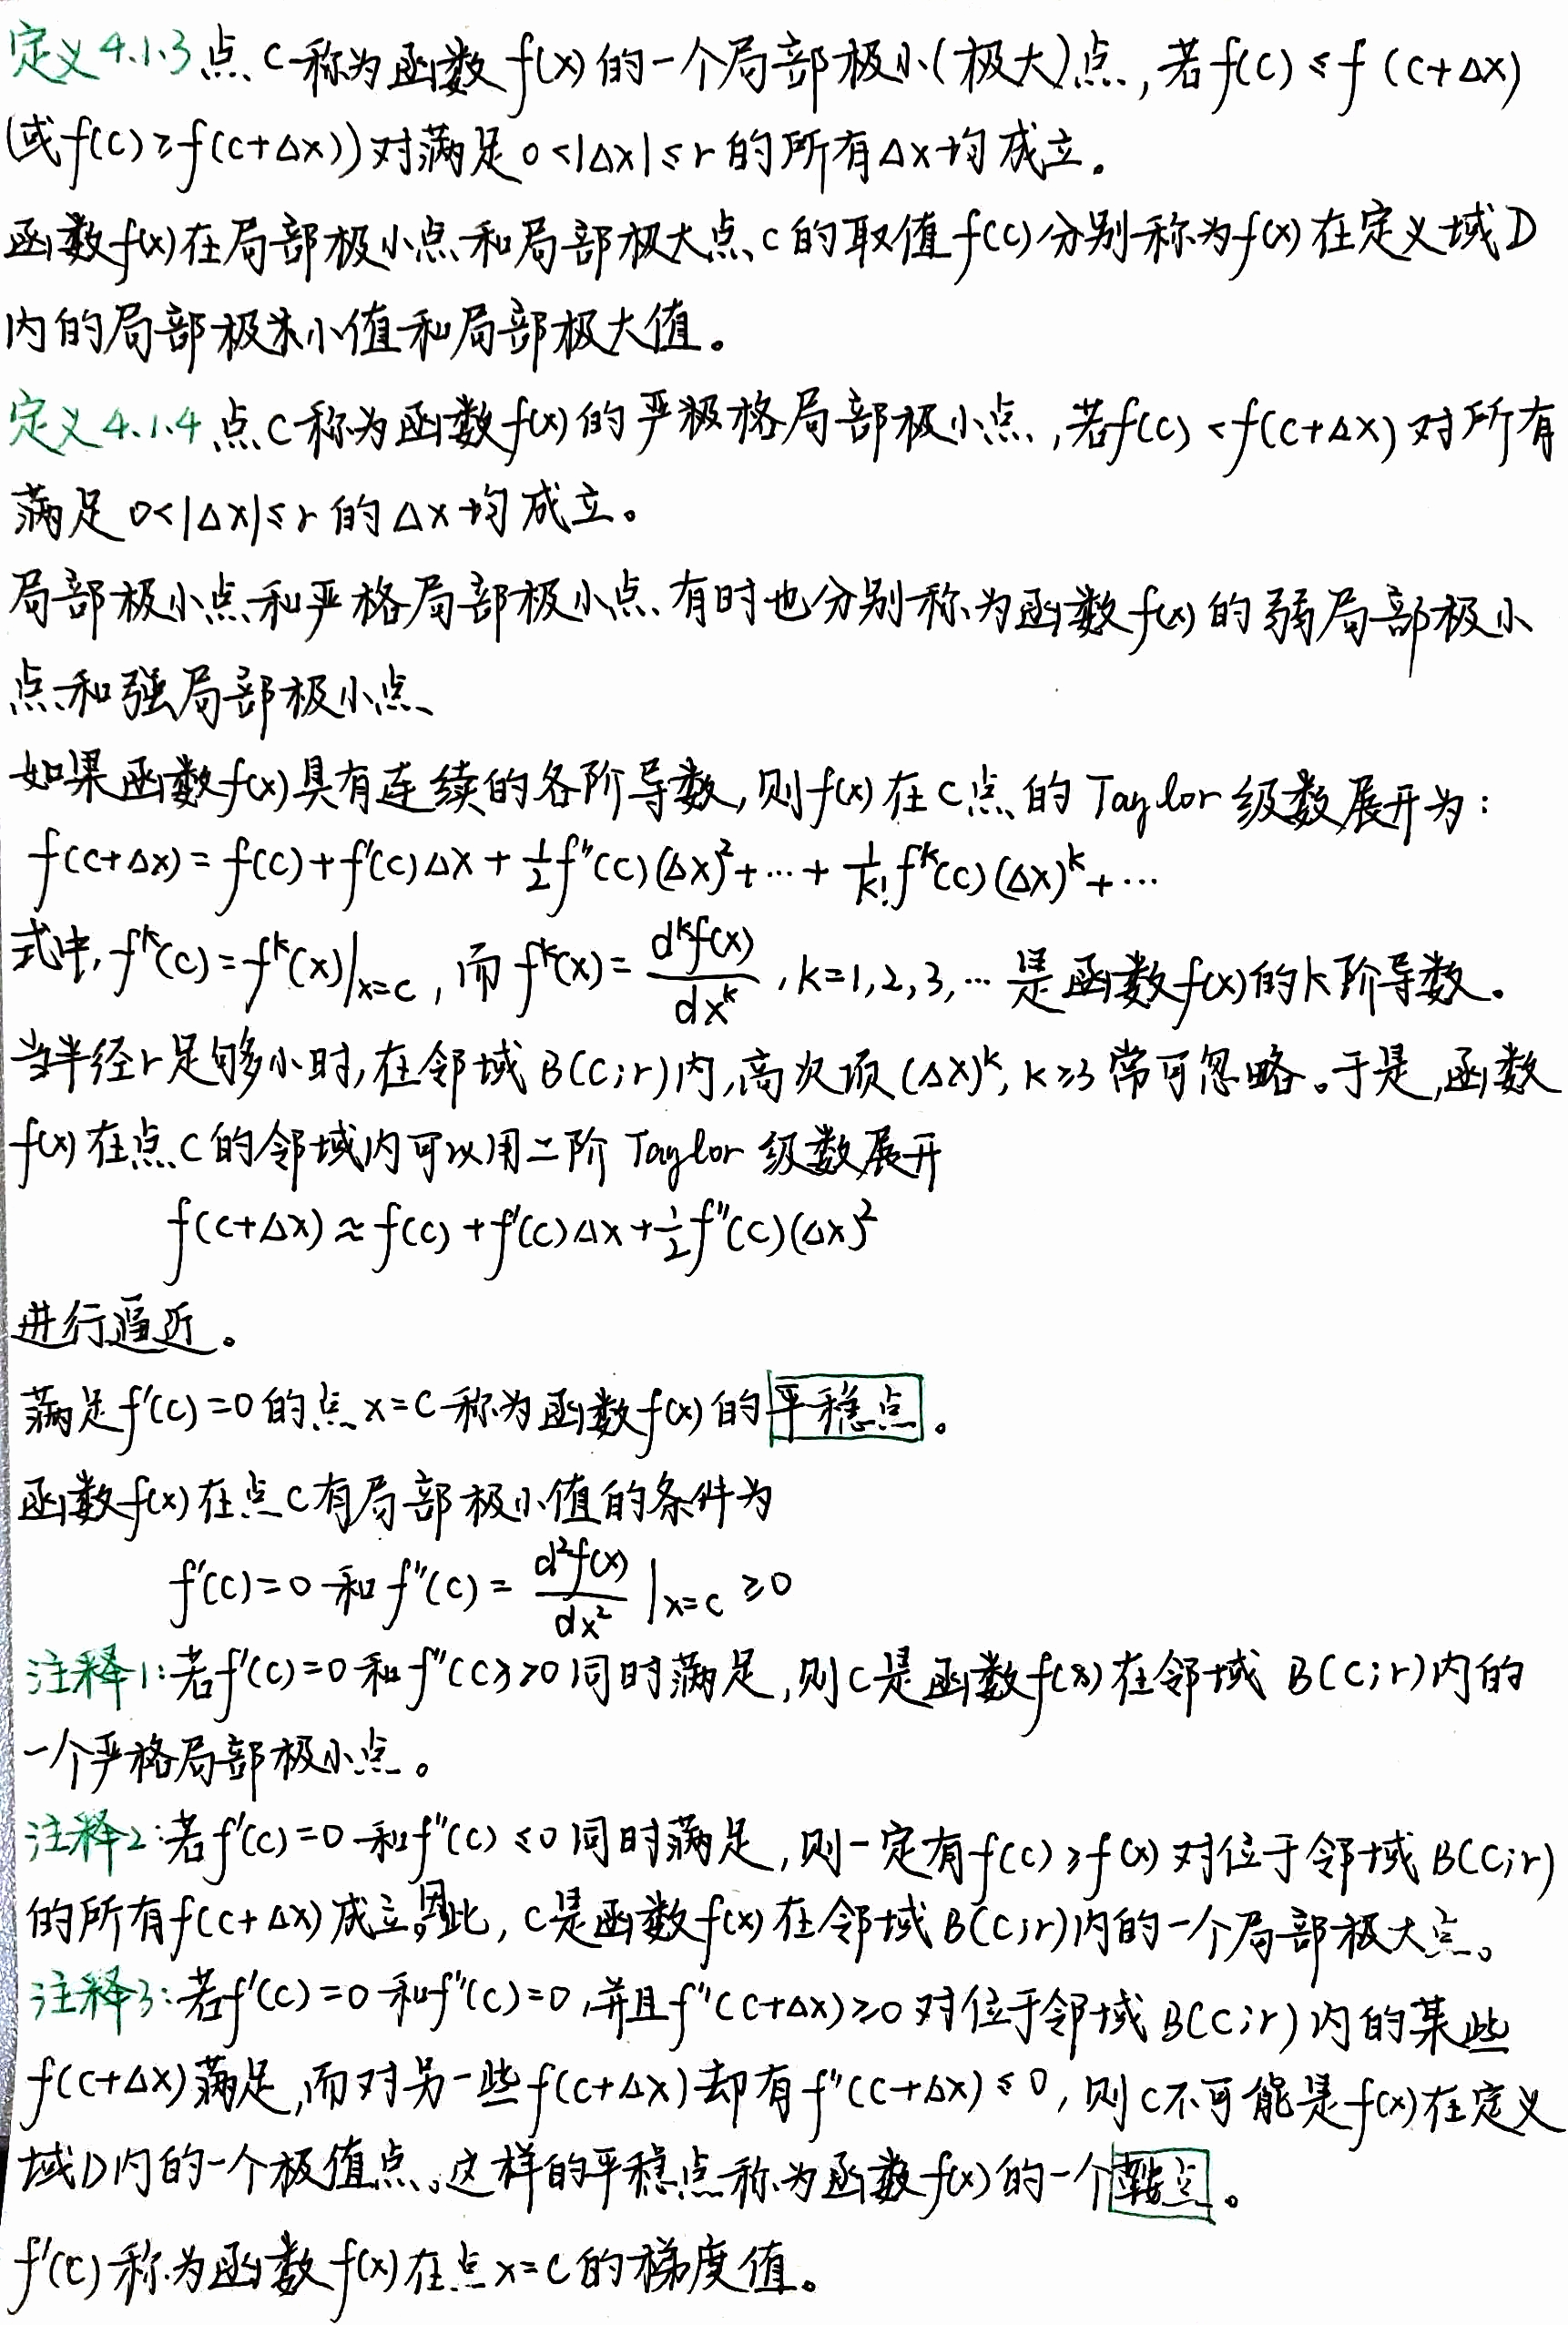 定义4.1.3 点c称为函数f(x)的一个局部极小(极大)点,若f(c)≤f(c+Δx)
(或f(c)≥f(c+Δx))对满足0<|Δx|≤r的所有Δx均成立。
函数f(x)在局部极小点和局部极大点c的取值f(c)分别称为f(x)在定义域D
内的局部极小值和局部极大值。
定义4.1.4 点c称为函数f(x)的严格局部极小点,若f(c)<f(c+Δx)对所有
满足0<|Δx|≤r的Δx均成立。
局部极小点和严格局部极小点有时也分别称为函数f(x)的弱局部极小
点和强局部极小点
如果函数f(x)具有连续的各阶导数,则f(x)在c点的Taylor级数展开为:
f(c+Δx)=f(c)+f'(c)Δx+½f''(c)(Δx)²+…+1/k! fᵏ(c)(Δx)ᵏ+…
式中,fᵏ(c)=fᵏ(x)|x=c,而fᵏ(x)=dᵏf(x)/dxᵏ,k=1,2,3,…是函数f(x)的k阶导数。
当半径r足够小时,在邻域B(c;r)内,高次项(Δx)ᵏ,k≥3常可忽略。于是,函数
f(x)在点c的邻域内可以用二阶Taylor级数展开
f(c+Δx)≈f(c)+f'(c)Δx+½f''(c)(Δx)²
进行逼近。
满足f'(c)=0的点x=c称为函数f(x)的平稳点。
函数f(x)在点c有局部极小值的条件为
f'(c)=0和f''(c)=d²f(x)/dx²|x=c≥0
注释1:若f'(c)=0和f''(c)>0同时满足,则c是函数f(x)在邻域B(c;r)内的
一个严格局部极小点。
注释2:若f'(c)=0和f''(c)≤0同时满足,则一定有f(c)≥f(x)对位于邻域B(c;r)
的所有f(c+Δx)成立。因此,c是函数f(x)在邻域B(c;r)内的一个局部极大点。
注释3:若f'(c)=0和f''(c)=0,并且f''(c+Δx)≥0对位于邻域B(c;r)内的某些
f(c+Δx)满足,而对另一些f(c+Δx)却有f''(c+Δx)≤0,则c不可能是f(x)在定义
域D内的一个极值点。这样的平稳点称为函数f(x)的一个鞍点。
f'(c)称为函数f(x)在点x=c的梯度值。